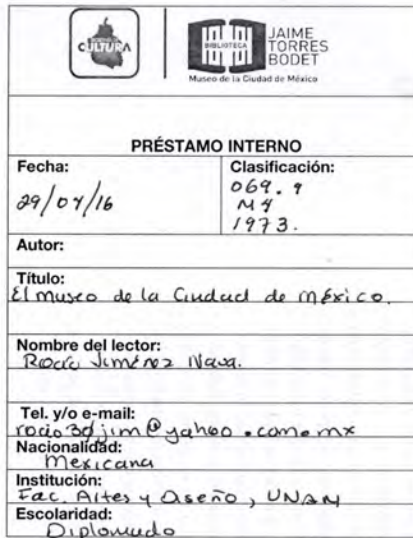 CULTURA
BIBLIOTECA
JAIME
TORRES
BODET
Museo de la Ciudad de México
PRÉSTAMO INTERNO
Fecha:
29/04/16
Clasificación:
069.9
M4
1973.
Autor:
Título:
El museo de la Ciudad de México.
Nombre del lector:
Rocío Jiménez Nava.
Tel. y/o e-mail:
rocio3djim@yahoo.com.mx
Nacionalidad:
Mexicana
Institución:
Fac. Artes y Diseño, UNAM
Escolaridad:
Diplomado